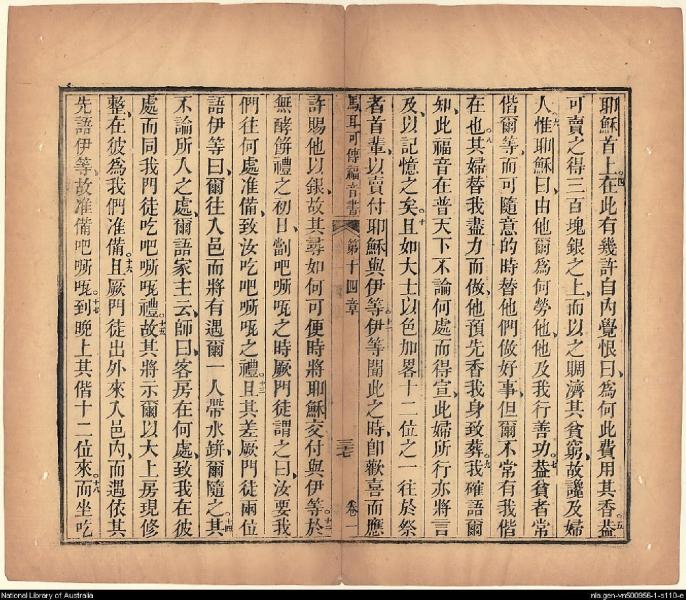 耶穌首上在此有幾許自內覺恨曰為何此費用其香葢
可賣之得三百塊銀之上而以之賙濟其貧窮故讒及婦
人惟耶穌曰由他爾為何勞他他及我行善功葢貧者常
偕爾等而可隨意的時替他們做好事但爾不常有我偕
在也其婦替我盡力而做他預先香我身致葬我確語爾
知此福音在普天下不論何處而得宣此婦所行亦將言
及以記憶之矣且如大士以色加畧十二位之一往於祭
者首輩以賣付耶穌與伊等伊等聞此之時卽歡喜而應
馬耳可傳福音書 第十四章 三七 卷一
許賜他以銀故其尋如何可便時將耶穌交付與伊等於
無酵餅禮之初日劏吧嘶㕸之時厥門徒謂之曰汝要我
們往何處准備致汝吃吧嘶㕸之禮且其差厥門徒兩位
語伊等曰爾往入邑而將有遇爾一人帶水缾爾隨之其
不論所入之處爾語家主云師曰客房在何處致我在彼
處而同我門徒吃吧嘶㕸禮故其將示爾以大上房現修
整在彼為我們准備且厥門徒出外來入邑內而遇依其
先語伊等故准備吧嘶㕸到晚上其偕十二位來而坐吃
National Library of Australia
nla.gen-vn500956-1-s110-e